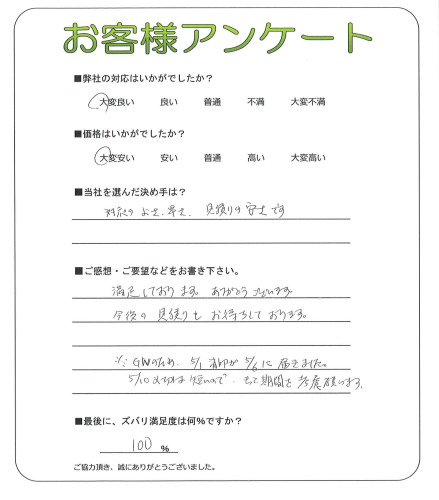 お客様アンケート
■弊社の対応はいかがでしたか？
大変良い 良い 普通 不満 大変不満
■価格はいかがでしたか？
大変安い 安い 普通 高い 大変高い
■当社を選んだ決め手は？
対応のよさ、早さ、見積りの安さです
■ご感想・ご要望などをお書き下さい。
満足しております。ありがとうございます。
今後の見積りもお待ちしております。
※ GWのため、5/1 が 5/6 に届きました。
5/10 は短いので、 期間を考慮願います。
■最後に、ズバリ満足度は何％ですか？
100 ％
ご協力頂き、誠にありがとうございました。